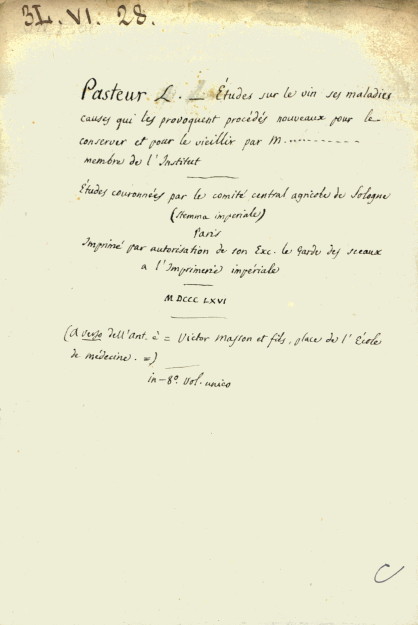 3L. VI. 28.
Pasteur L. — Études sur le vin ses maladies
causes qui les provoquent procédés nouveaux pour le
conserver et pour le vieillir par M...........
membre de l'Institut
Études couronnées par le comité central agricole de Sologne
(stemma imperiale)
Paris
Imprimé par autorisation de son Exc. le Garde des sceaux
a l'Imprimerie impériale
MDCCCLXVI
(a verso dell'Ant. è = Victor Masson et fils, place de l'École
de médecine. =)
in-8º. Vol. unico
C